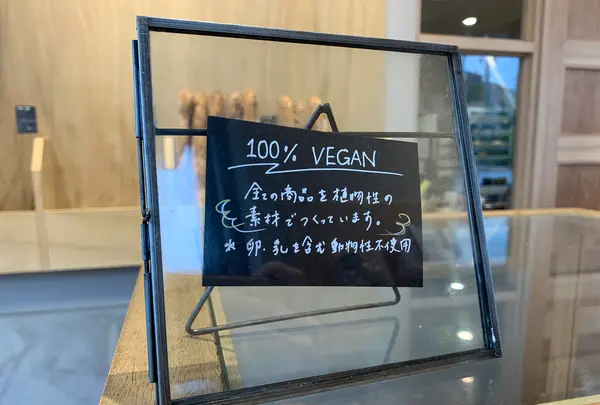 100% VEGAN
全ての商品を植物性の
素材でつくっています。
※ 卵・乳を含む動物性不使用